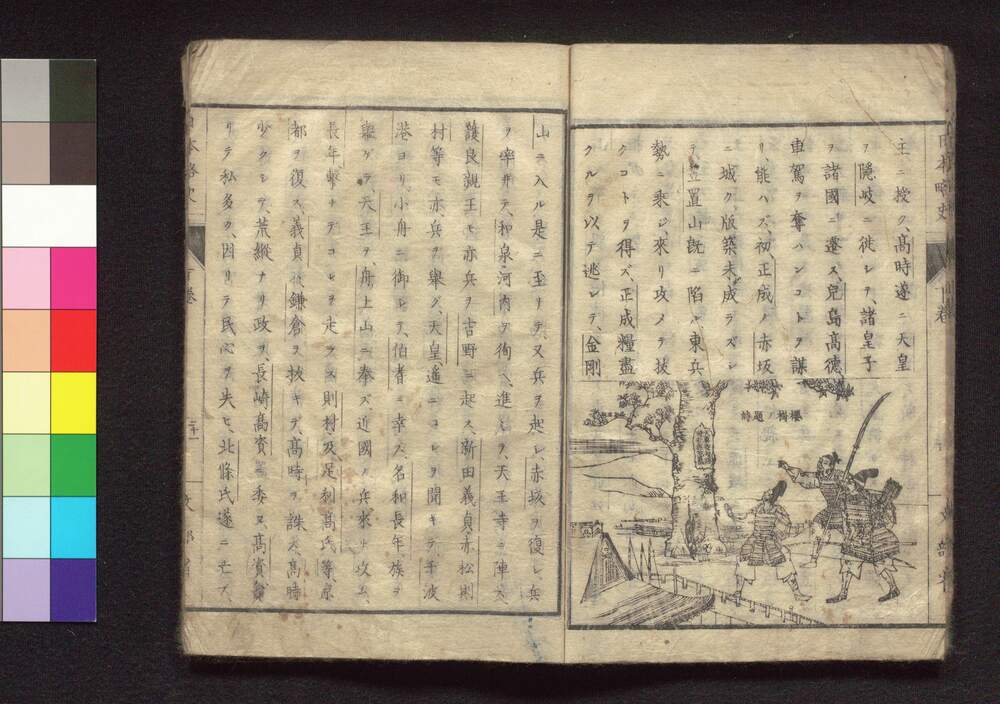 主ニ授ク、高時遂ニ天皇
ヲ隱岐ニ徙シテ、諸皇子
ヲ諸國ニ遷ス、兒島高德、
車駕ヲ奪ハンコトヲ謀
リ、能ハズ、初、正成ノ赤坂
ニ城ク、版築未成ラズシ
テ笠置山既ニ陷ル、東兵
勢ニ乘ジ、來リ攻メテ拔
クコトヲ得ズ、正成糧盡
クルヲ以テ逃レテ、金剛
櫻樹ノ題詩
山ニ入ル是ニ至リテ、又兵ヲ起シ、赤坂ヲ復シ、兵
ヲ率井テ、和泉河内ヲ徇ヘ、進ミテ、天王寺ニ陣ス、
護良親王モ亦兵ヲ吉野ニ起ス、新田義貞、赤松則
村等モ亦、兵ヲ擧グ、天皇、遙ニコレヲ聞キテ、千波
港ヨリ、小舟ニ御シテ、伯耆ニ幸ス、名和長年、族ヲ
擧ゲテ、天王ヲ、舟上山ニ奉ズ、近國ノ兵來リ攻ム、
長年擊チテコレヲ走ラス、則村及足利高氏等、京
都ヲ復ス、義貞鎌倉ヲ拔キテ、高時ヲ誅ス、高時
少クシテ、荒縱ナリ政ヲ、長崎高資ニ委ヌ、高資
リテ私多ク、因リテ民心ヲ失ヒ、北條氏遂ニ亡ブ、